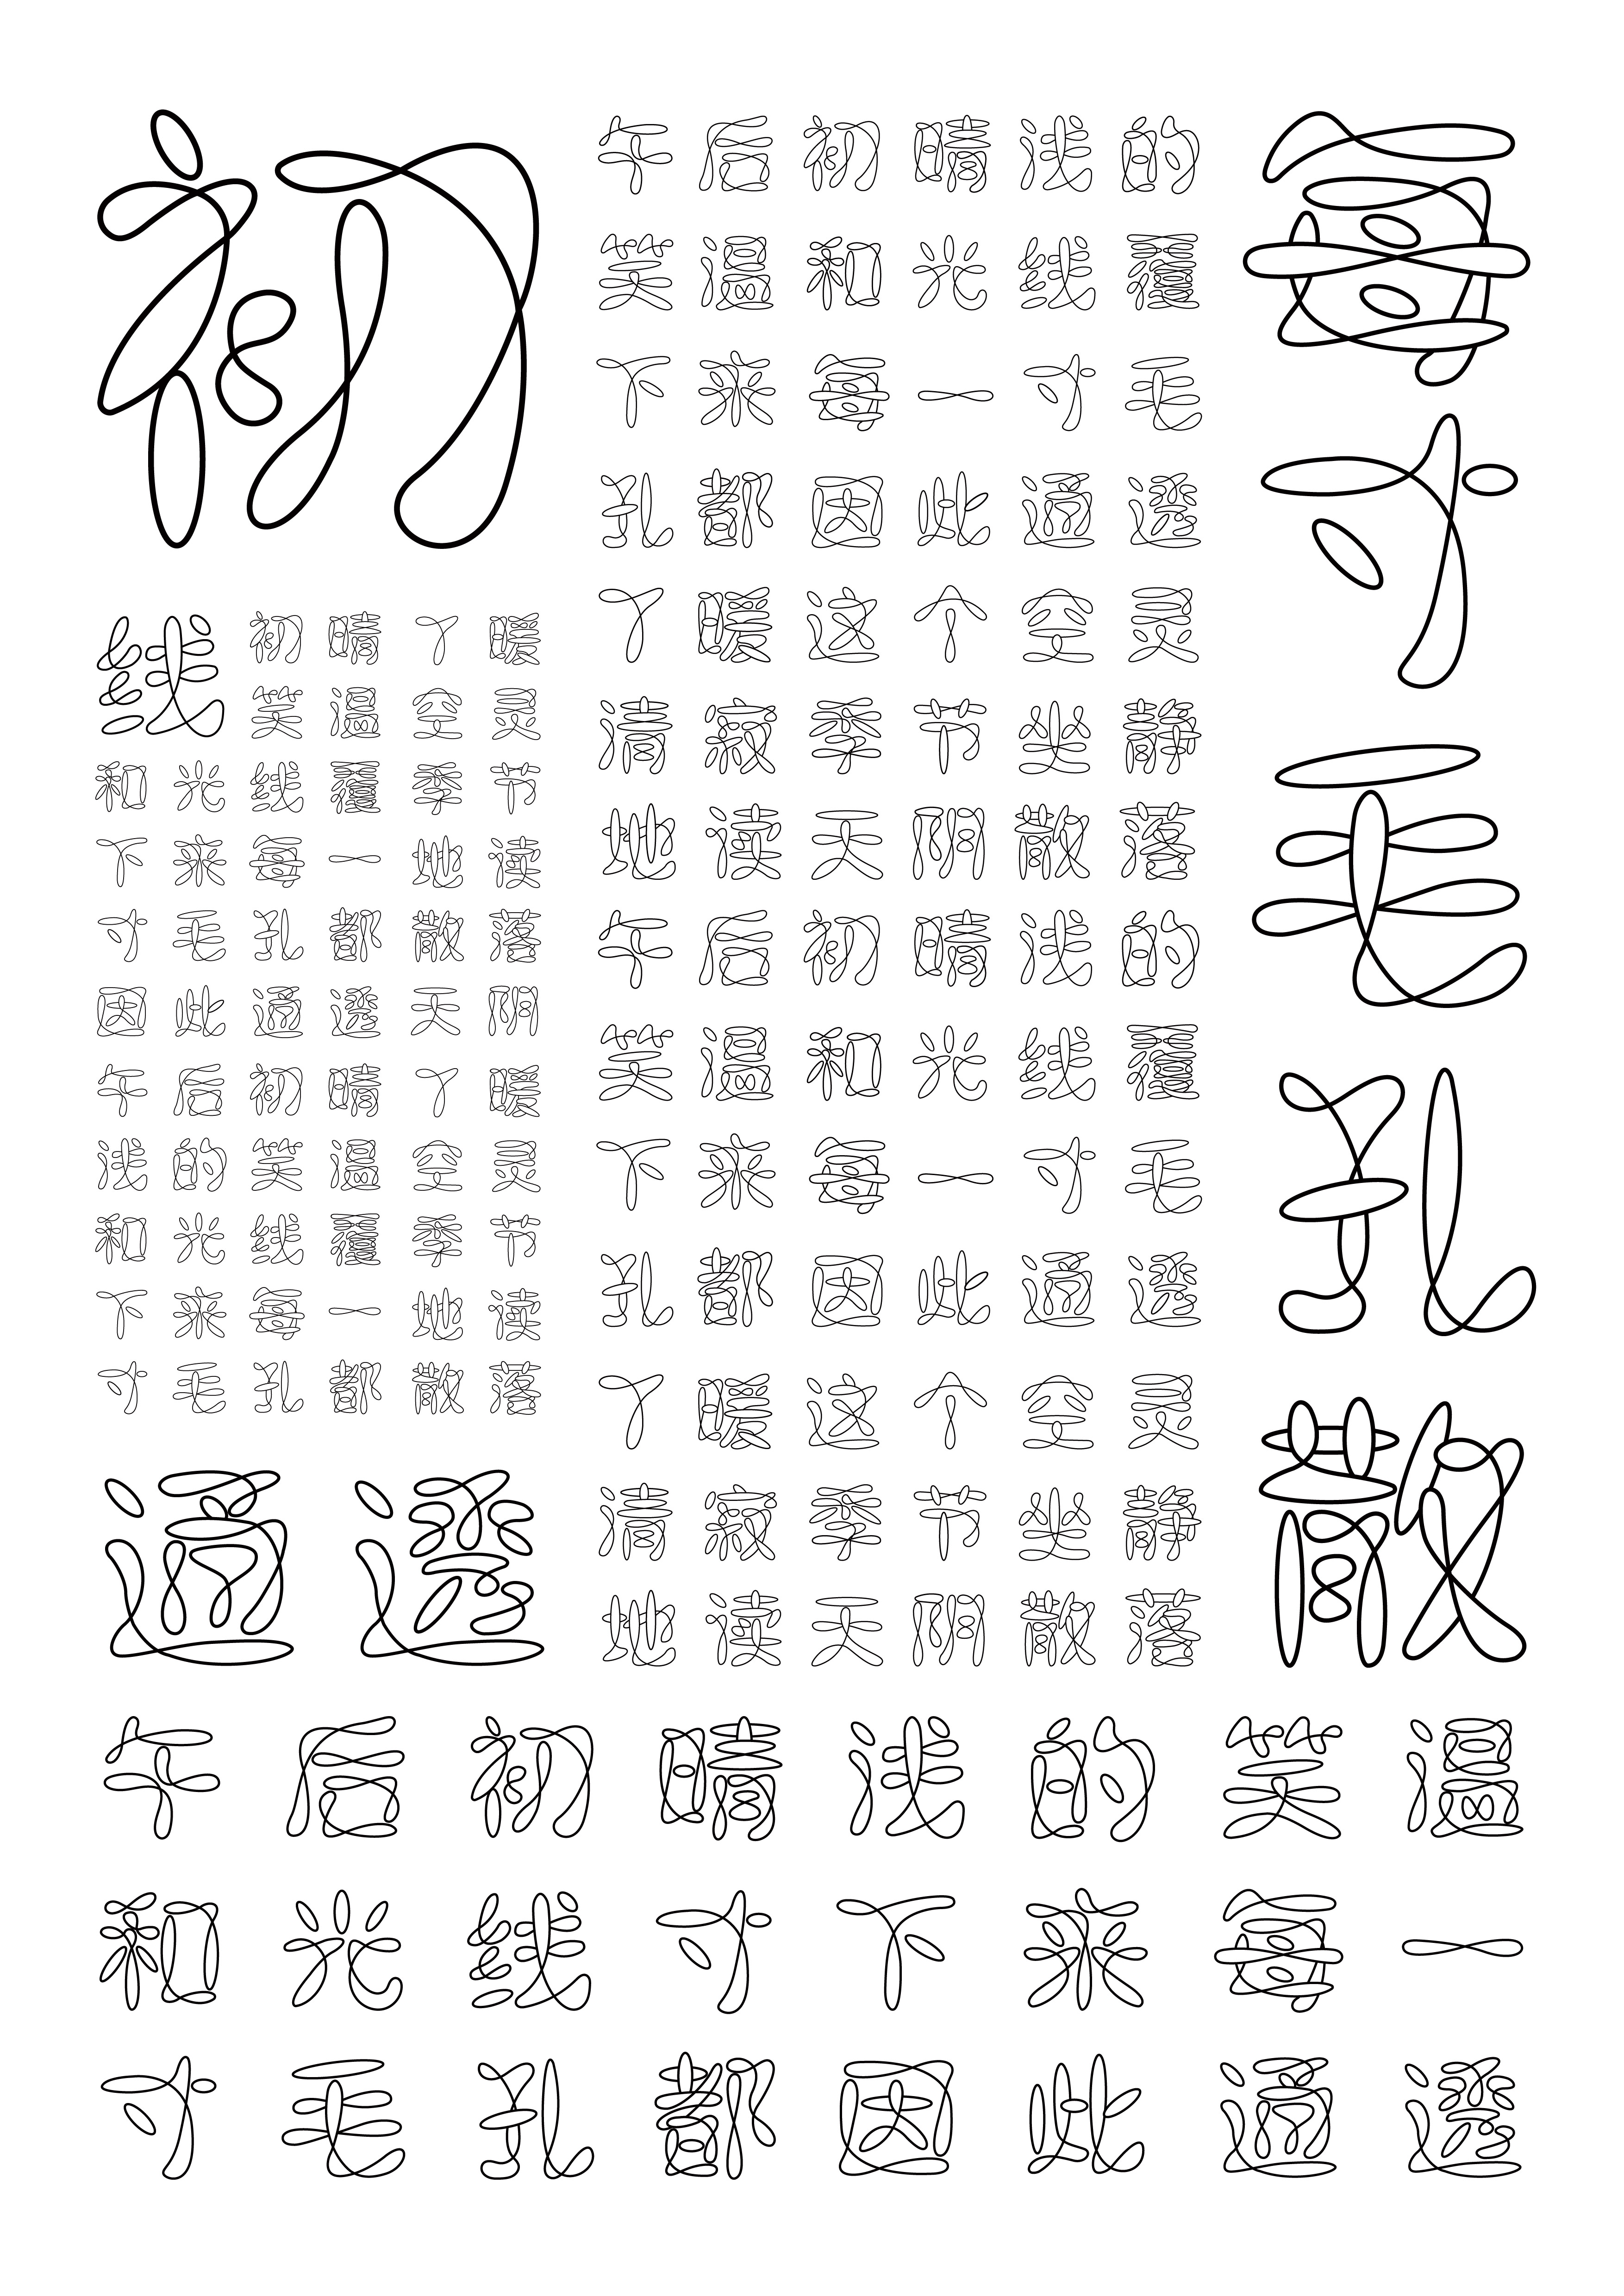 初
线
初晴了暖
笑温空灵
和光线覆季节
下来每一地读
寸毛孔都散落
因此通透天阴
午后初晴了暖
浅的笑温空灵
和光线覆季节
下来每一地读
寸毛孔都散落
通透
午后初晴浅的
笑温和光线覆
下来每一寸毛
孔都因此通透
了暖这个空灵
清寂季节坐静
地读天阴散落
午后初晴浅的
笑温和光线覆
下来每一寸毛
孔都因此通透
了暖这个空灵
清寂季节坐静
地读天阴散落
每
寸
毛
孔
散
午后初晴浅的笑温
和光线寸下来每一
寸毛孔都因此通透